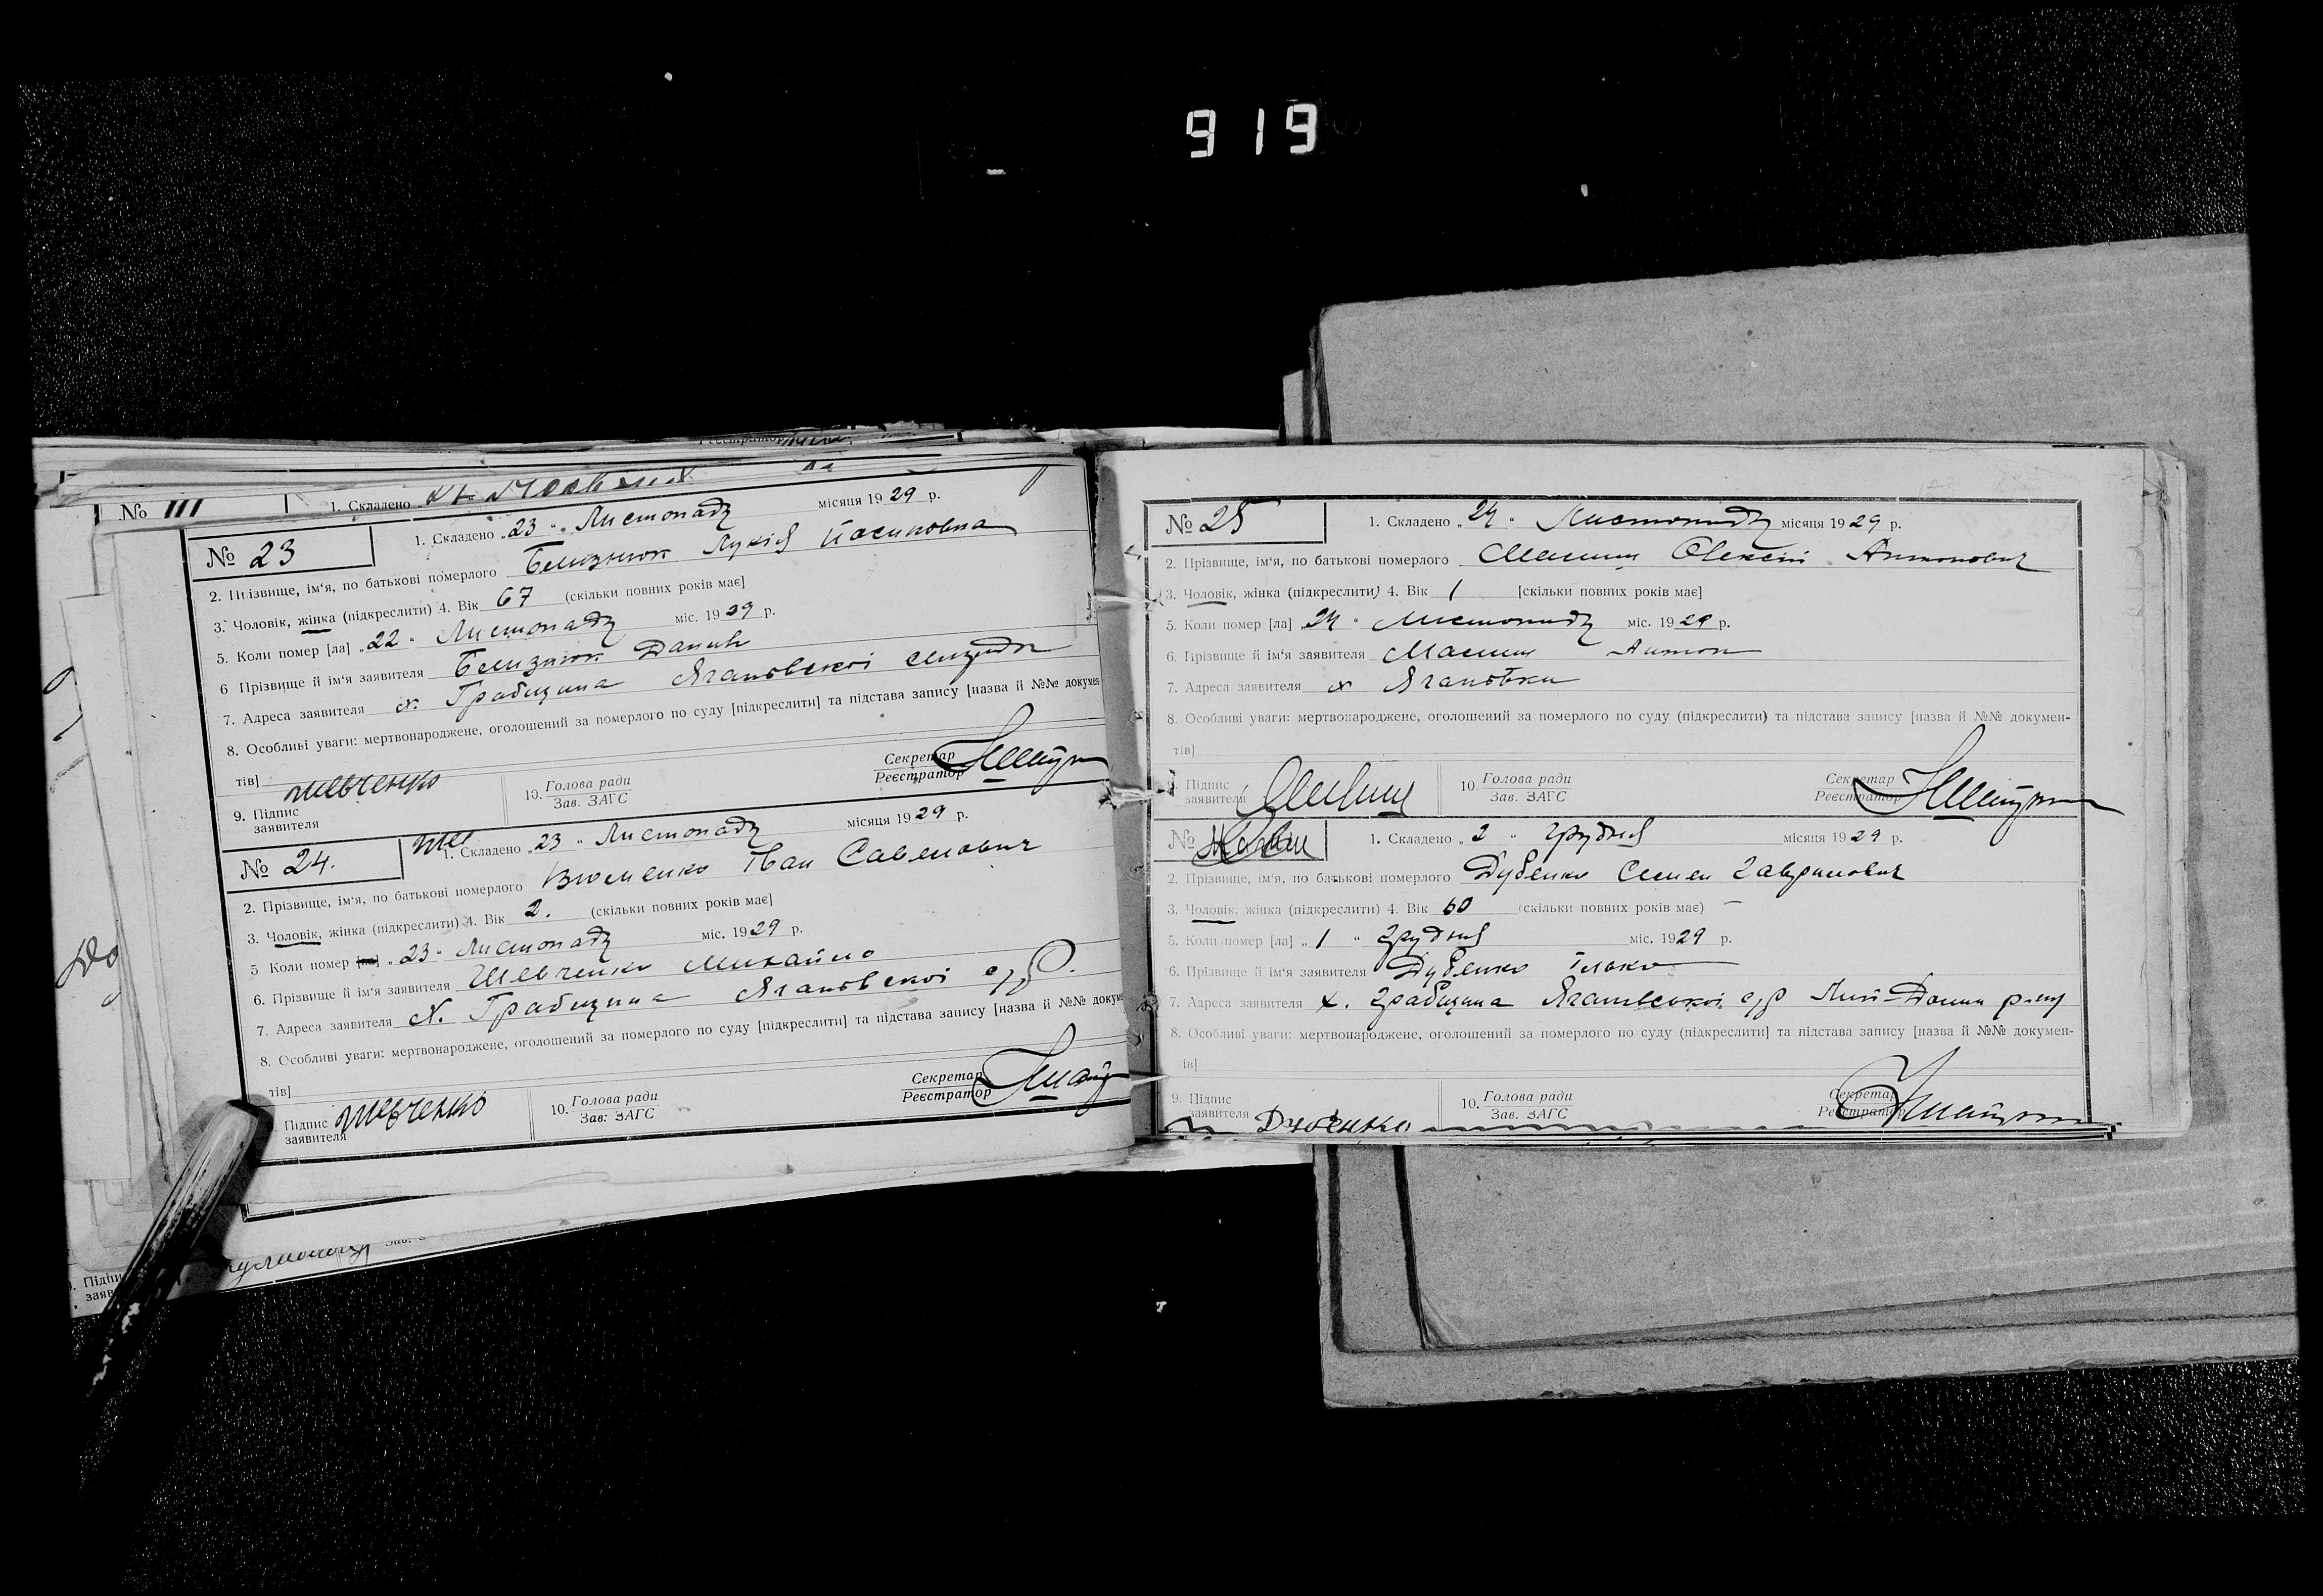 919
№ III 1. Складено
№ 23 1. Складено „23“ Листопаду місяця 1929 р.
2. Прізвище, ім'я, по батькові померлого Лукія
3. Чоловік, жінка (підкреслити) 4. Вік 67 (скільки повних років має]
5. Коли помер [ла] „22“ Листопаду міс. 1929 р.
6 Прізвище й ім'я заявителя Данило
7. Адреса заявителя х. Грабщина
8. Особливі уваги: мертвонароджене, оголошений за померлого по суду [підкреслити] та підстава запису [назва й №№ докумен-
тів]
9. Підпис заявителя Шевченко 10. Голова ради Зав. ЗАГС Секретар Реєстратор
№ 24. 1. Складено „23“ Листопаду місяця 1929 р.
2. Прізвище, ім'я, по батькові померлого Іван Савелович
3. Чоловік, жінка (підкреслити) 4. Вік 2. (скільки повних років має]
5 Коли помер [ла] „23“ Листопаду міс. 1929 р.
6. Прізвище й ім'я заявителя Шевченко Михайло
7. Адреса заявителя х. Грабщина с/р.
8. Особливі уваги: мертвонароджене, оголошений за померлого по суду [підкреслити] та підстава запису [назва й №№ докум
тів]
Підпис заявителя Шевченко 10. Голова ради Зав. ЗАГС Секретар Реєстратор
№ 25 1. Складено „24“ Листопаду місяця 1929 р.
2. Прізвище, ім'я, по батькові померлого Олексій Антонович
3. Чоловік, жінка (підкреслити) 4. Вік 1 [скільки повних років має]
5. Коли помер [ла] „24“ Листопаду міс. 1929 р.
6. Прізвище й ім'я заявителя Антон
7. Адреса заявителя х Ягановка
8. Особливі уваги: мертвонароджене, оголошений за померлого по суду (підкреслити) та підстава запису [назва й №№ докумен-
тів]
Підпис заявителя 10. Голова ради Зав. ЗАГС Секретар Реєстратор
№ 1. Складено „2“ Грудня місяця 1929 р.
2. Прізвище, ім'я, по батькові померлого Дубенко Семен Гаврилович
3. Чоловік, жінка (підкреслити) 4. Вік 60 (скільки повних років має)
5. Коли помер [ла] „1“ Грудня міс. 1929 р.
6. Прізвище й ім'я заявителя Дубенко Ілько
7. Адреса заявителя х. Грабщина с/р
8. Особливі уваги: мертвонароджене, оголошений за померлого по суду (підкреслити] та підстава запису [назва й №№ докумен-
ів]
9. Підпис заявителя Дубенко 10. Голова ради Зав. ЗАГС Секретар Реєстратор